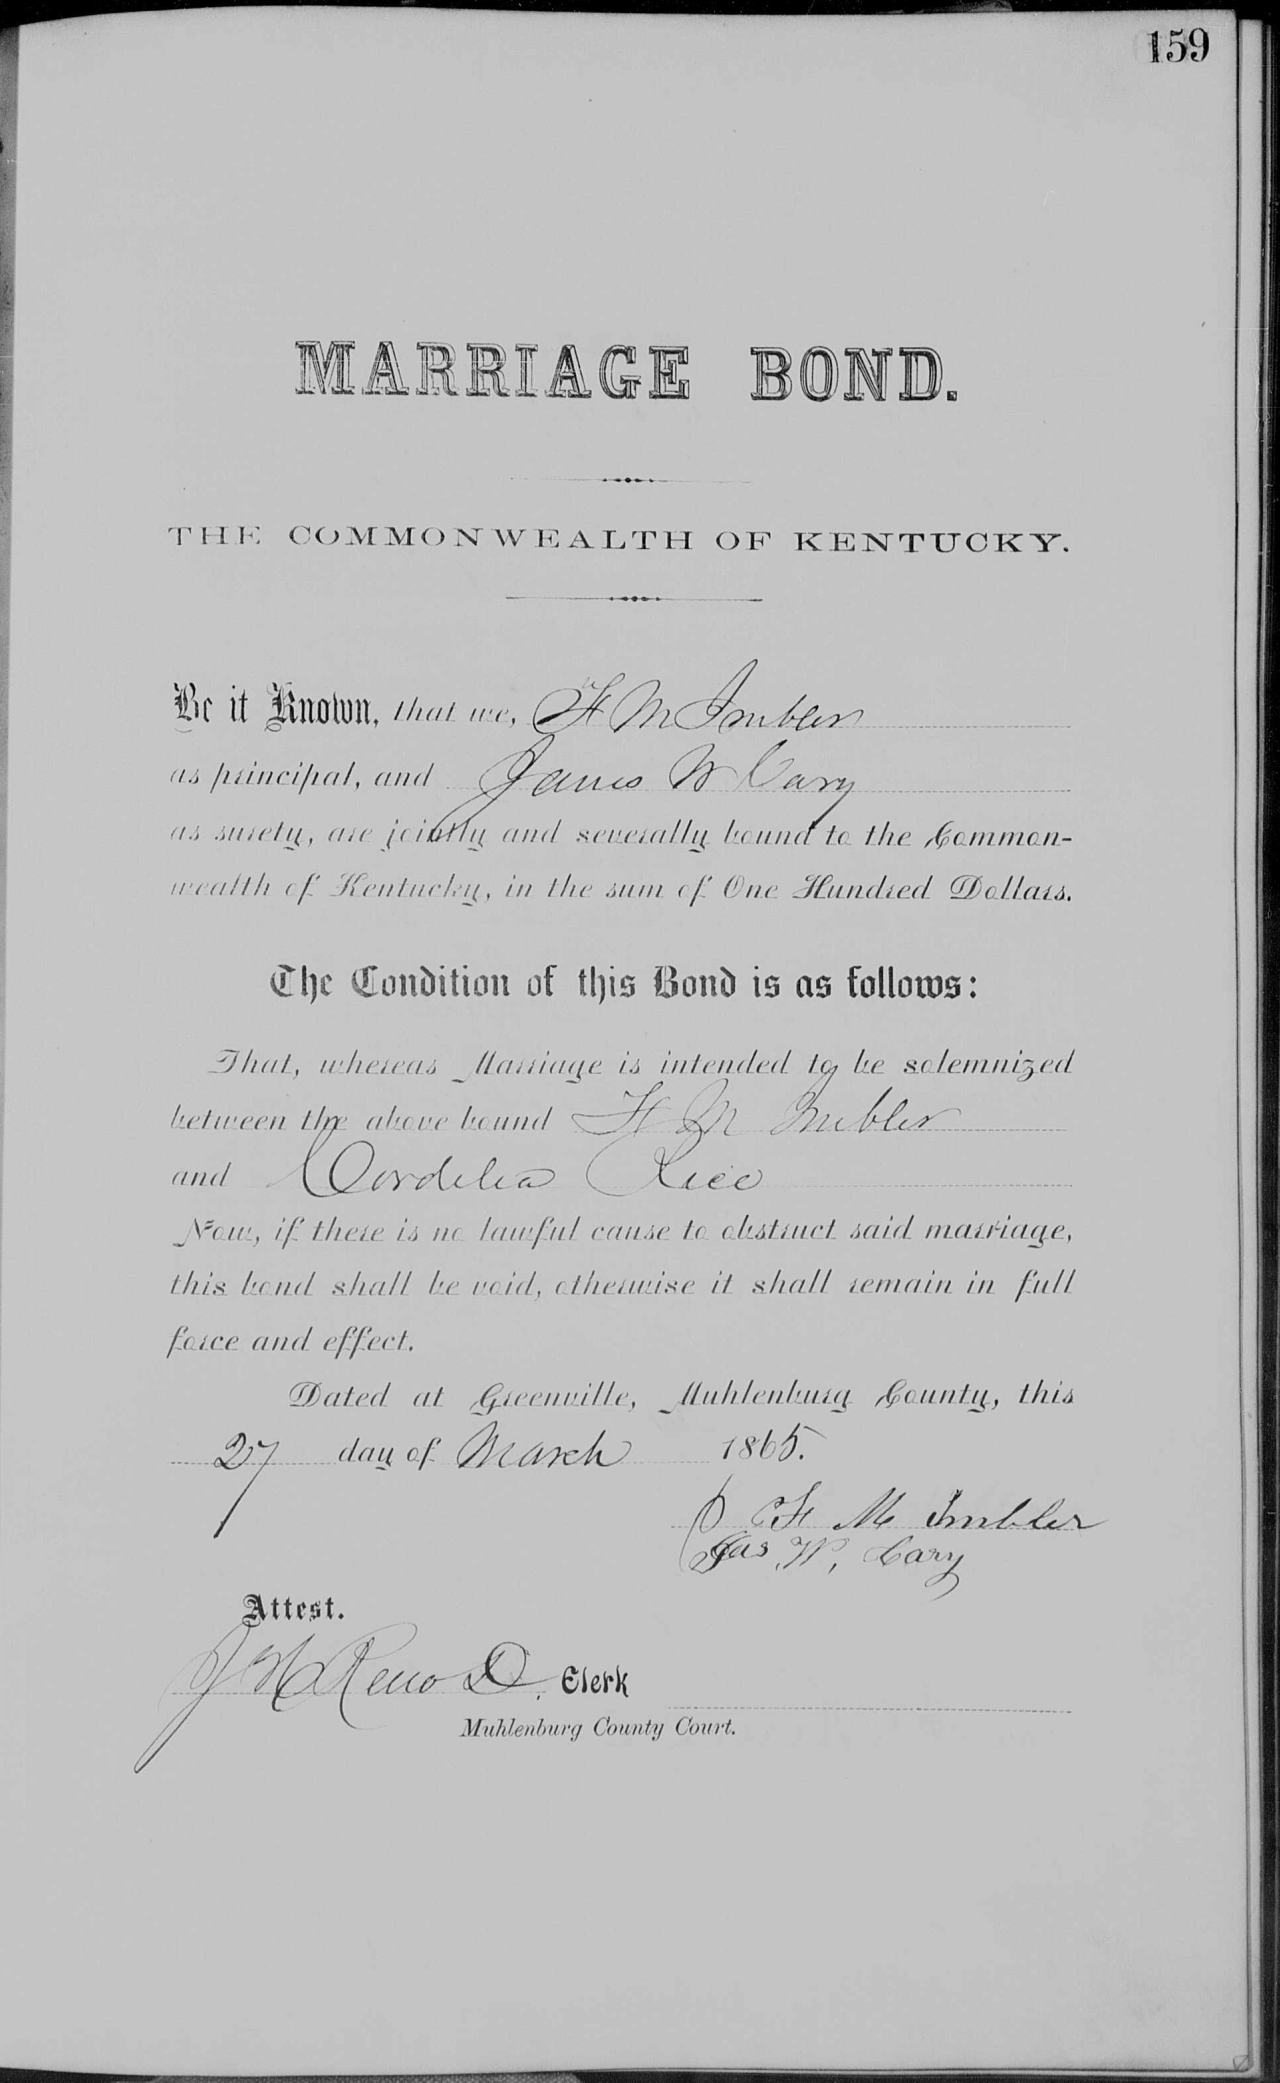 159
MARRIAGE BOND.
THE COMMONWEALTH OF KENTUCKY.
Be it Known, that we, F M Imbler
as principal, and James W Cary
as surety, are jointly and severally bound to the Common-
wealth of Kentucky, in the sum of One Hundred Dollars.
The Condition of this Bond is as follows:
That, whereas Marriage is intended to be solemnized
between the above bound F M Imbler
and Cordelia Rice
Now, if there is no lawful cause to obstruct said marriage,
this bond shall be void, otherwise it shall remain in full
force and effect.
Dated at Greenville, Muhlenburg County, this
27 day of March 1865.
F M Imbler
Jas W, Cary
Attest.
J W Reno D, Clerk
Muhlenburg County Court.